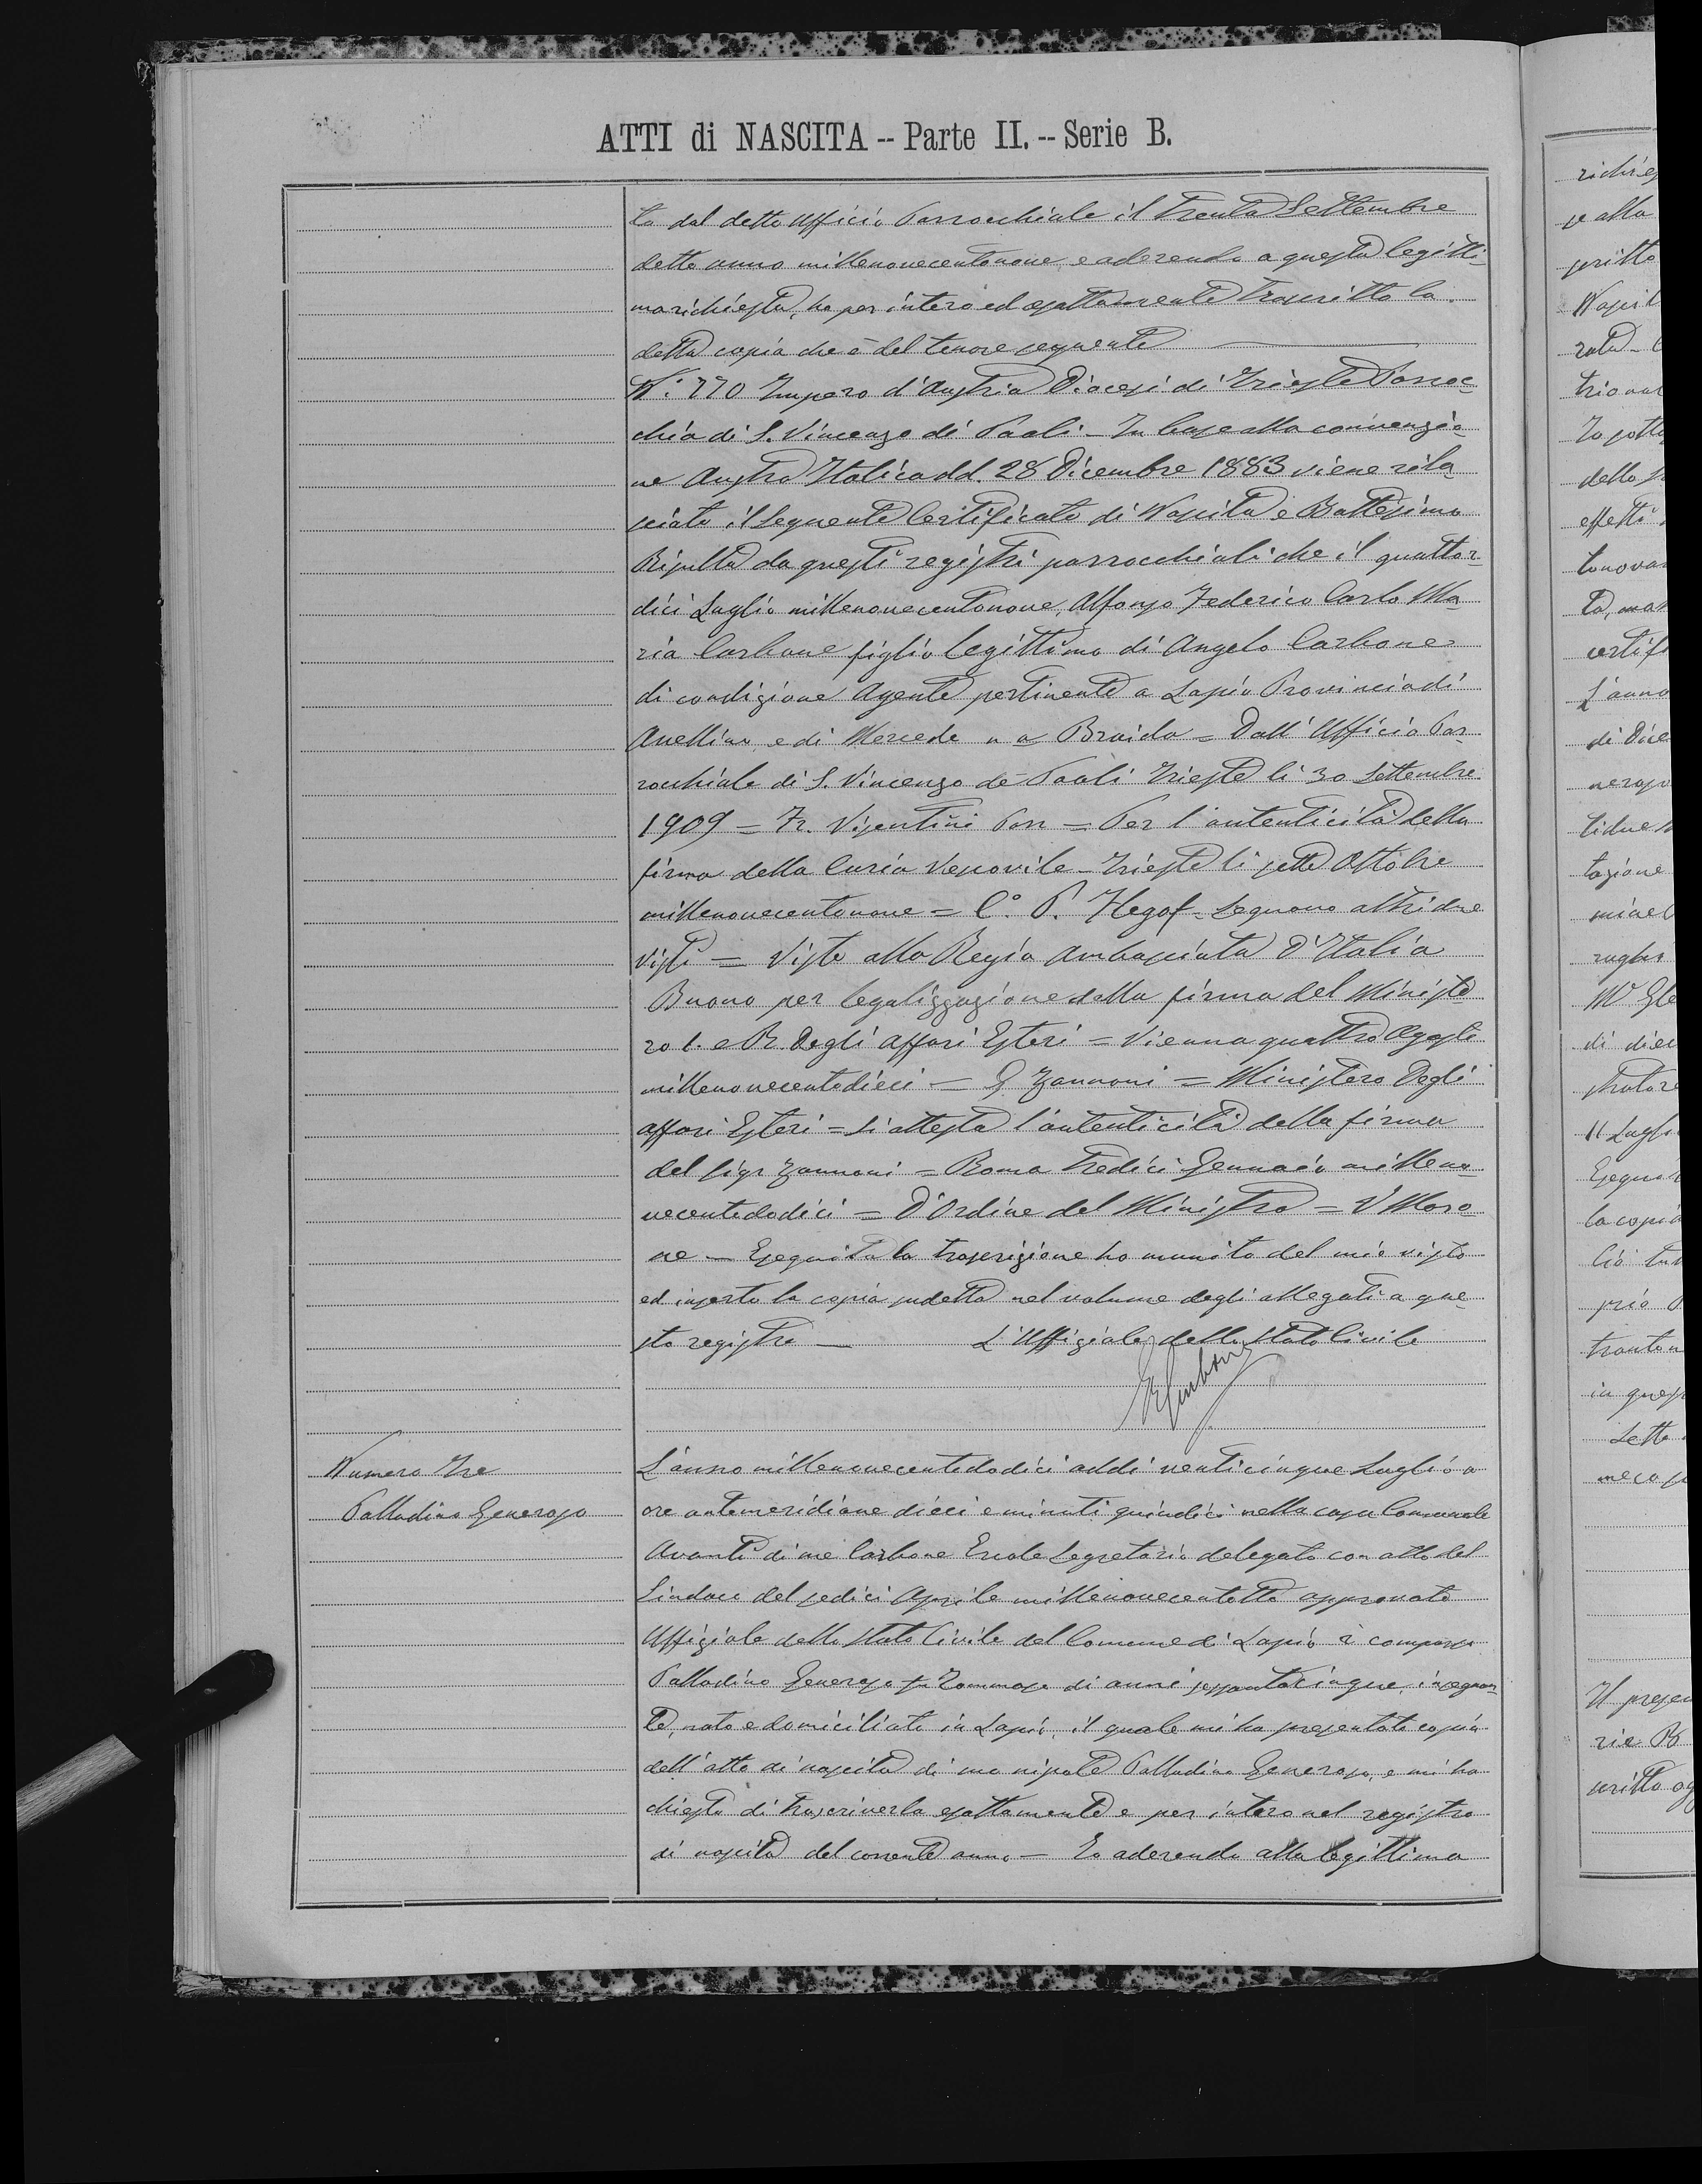 ATTI di NASCITA -- Parte II. -- Serie B.
ta dal detto Ufficio Parrocchiale il trenta Settembre
detto anno millenovecentonove, e aderendo a questa legitti-
ma richiesta, ho per intero ed esattamente trascritto la
detta copia che è del tenore seguente
N.° 770 Impero d'Austria Diocesi di Trieste Parroc-
chia di S. Vincenzo di Paoli - In base alla convenzio-
ne Austro Italica dd. 28 Dicembre 1883 viene rila
sciato il seguente Certificato di Nascita e Battesimo
Risulta da questi registri parrocchiali che il quattor-
dici Luglio millenovecentonove, Alfonso Federico Carlo Ma
ria Carbone figlio legittimo di Angelo Carbone
di condizione Agente pertinente a Lapio Provincia di
Avellino e di Mercede n a Braida = Dall'Ufficio Par-
rocchiale di S. Vincenzo de Paoli Trieste li 30 Settembre
1909 = Fr. Visentini Parr = Per l'autenticità della
firma della Curia Vescovile - Trieste li sette Ottobre
millenovecentonove = C.° P. = Seguono altri due
visti = Visto alla Regia Ambasciata d'Italia
Buono per legalizzazione della firma del Ministe
ro I. e R. degli affari Esteri = Vienna quattro Agosto
millenovecentodieci = G Zannoni = Ministero degli
affari Esteri = Si attesta l'autenticità della firma
del sigr Zannoni = Roma tredici Gennaio milleno
vecentododici = D'Ordine del Ministro = V Moro
ne — Eseguita la trascrizione ho munito del mio visto
ed inserto la copia sudetta nel volume degli allegati a que
sto registro — L'Uffiziale dello Stato Civile
ECarbone
Numero Tre
Palladino Generoso
L'anno millenovecentododici addi venticinque Luglio a
ore antemeridiane dieci e minuti quindici nella casa Comunale
Avanti di me Carbone Ercole Segretario delegato con atto del
Sindaco del sedici Aprile millenovecentotto approvato
Uffiziale dello Stato Civile del Comune di Lapio è comparso
Palladino Generoso fu Tommaso di anni sessantacinque, insegnan
te, nato e domiciliato in Lapio, il quale mi ha presentato copia
dell'atto di nascita di suo nipote Palladino Generoso, e mi ha
chiesto di trascriverla esattamente e per intero nel registro
di nascita del corrente anno — Io aderendo alla legittima